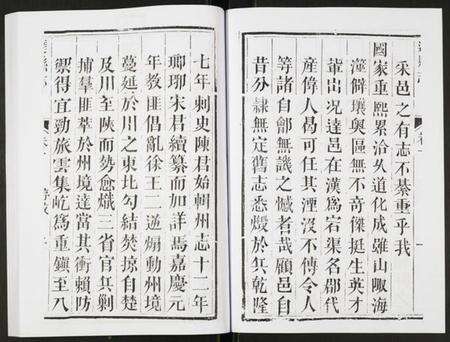 采邑之有志不綦重乎我
國家重熙累洽久道化成雖山陬海
澨僻壤與區無不奇傑挺生英才
輩出况達邑在漢爲宕渠名郡代
產偉人曷可任其湮沒不傳令人
等諸自鄶無譏之憾者哉顧邑自
昔分隸無定舊志悉燬於兵乾隆
七年刺史陳君始輯州志十二年
瑯琊宋君續纂而加詳焉嘉慶元
年教匪倡亂徐王二逆煽動州境
蔓延於川之東北勾結焚掠自楚
及川至陝而勢愈熾三省官兵剿
捕羣匪萃於州境達當其衝賴防
禦得宜勁旅雲集屹爲重鎮至八